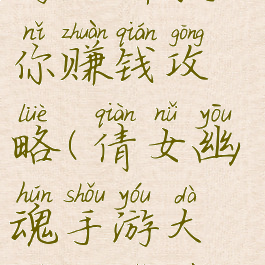 nǐ zhuàn qián gōng
你赚钱攻
lüè qiàn nǚ yōu
略(倩女幽
hún shǒu yóu dà
魂手游大